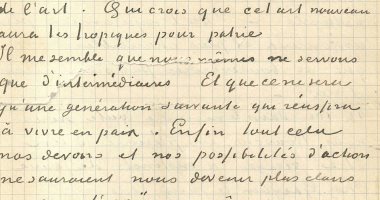 de l'art. Qui crois que cet art nouveau
aura les tropiques pour patrie
Il me semble que nous mêmes ne servons
que d'intermédiaires Et que ce ne sera
qu'une génération suivante qui réussira
à vivre en paix. Enfin tout cela
nos devoirs et nos possibilités d'action
ne sauraient nous devenir plus clairs